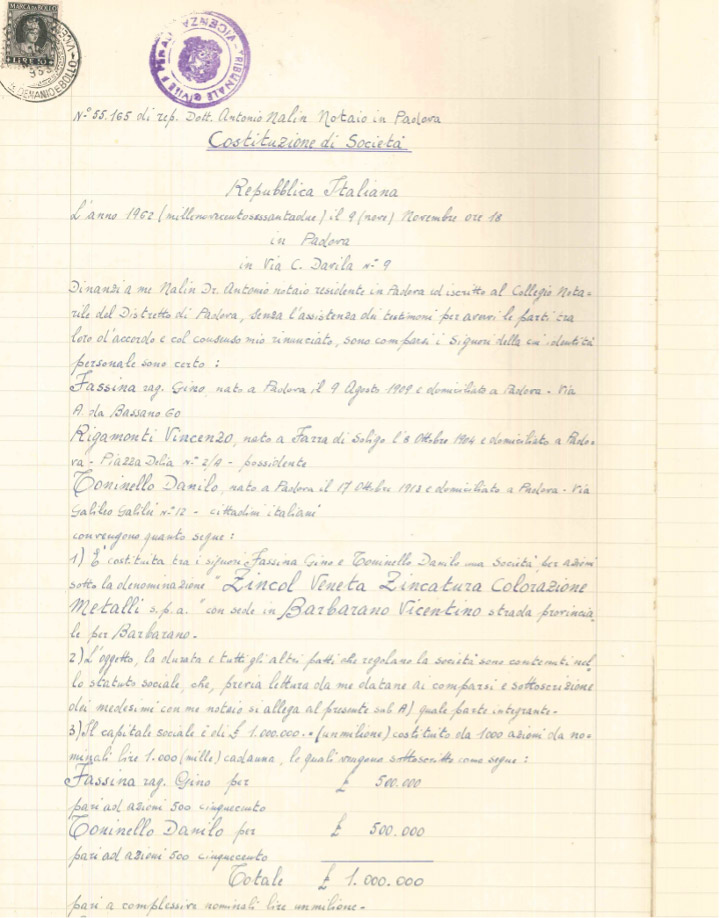 MARCA DA BOLLO
DEMANIO E BOLLO
TRIBUNALE CIVILE E PENALE VICENZA
N° 55.165 di rep. Dott. Antonio Nalin Notaio in Padova
Costituzione di Società
Repubblica Italiana
L'anno 1962 (millenovecentosessantadue) il 9 (nove) Novembre ore 18
in Padova
in Via C. Davila n° 9
Dinanzi a me Nalin Dr. Antonio notaio residente in Padova ed iscritto al Collegio Nota=
rile del Distretto di Padova, senza l'assistenza dei testimoni per avervi le parti tra
loro d'accordo e col consenso mio rinunciato, sono comparsi i Signori della cui identità
personale sono certo :
Fassina rag. Gino, nato a Padova il 9 Agosto 1909 e domiciliato a Padova - Via
A. da Bassano 60
Rigamonti Vincenzo, nato a Farra di Soligo l'8 Ottobre 1904 e domiciliato a Pado=
va - Piazza Delia n° 2/A - possidente
Toninello Danilo, nato a Padova il 17 Ottobre 1913 e domiciliato a Padova - Via
Galileo Galilei n° 12 - cittadini italiani
convengono quanto segue :
1) E' costituita tra i signori Fassina Gino e Toninello Danilo una Società per azioni
sotto la denominazione " Zincol Veneta Zincatura Colorazione
Metalli s.p.a. " con sede in Barbarano Vicentino strada provincia=
le per Barbarano -
2) L'oggetto, la durata e tutti gli altri patti che regolano la società sono contenuti nel=
lo statuto sociale, che, previa lettura da me datane ai comparsi e sottoscrizione
dei medesimi con me notaio si allega al presente sub A) quale parte integrante -
3) Il capitale sociale è di £ 1.000.000.= (unmilione) costituito da 1000 azioni da no=
minali lire 1.000 (mille) cadauna, le quali vengono sottoscritte come segue :
Fassina rag. Gino per £ 500.000
pari ad azioni 500 cinquecento
Toninello Danilo per £ 500.000
pari ad azioni 500 cinquecento
Totale £ 1.000.000
pari a complessive nominali lire unmilione -